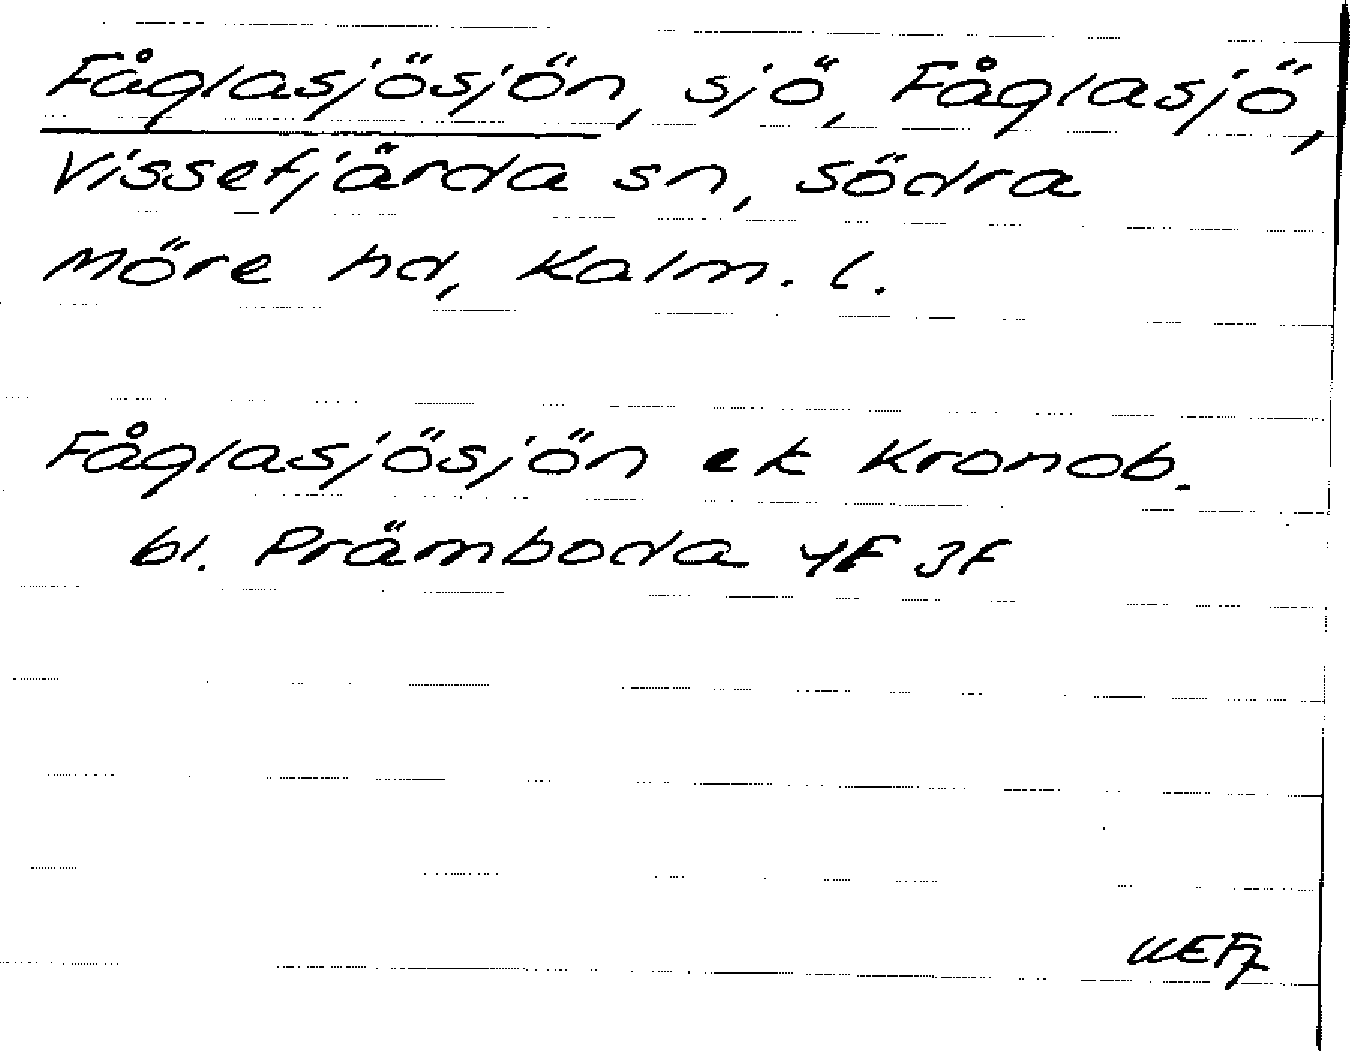 Fåglasjösjön, sjö, Fåglasjö,
Vissefjärda sn, södra
Möre hd, Kalm. l.
Fåglasjösjön ek Kronob.
bl. Prämboda 4F 3f